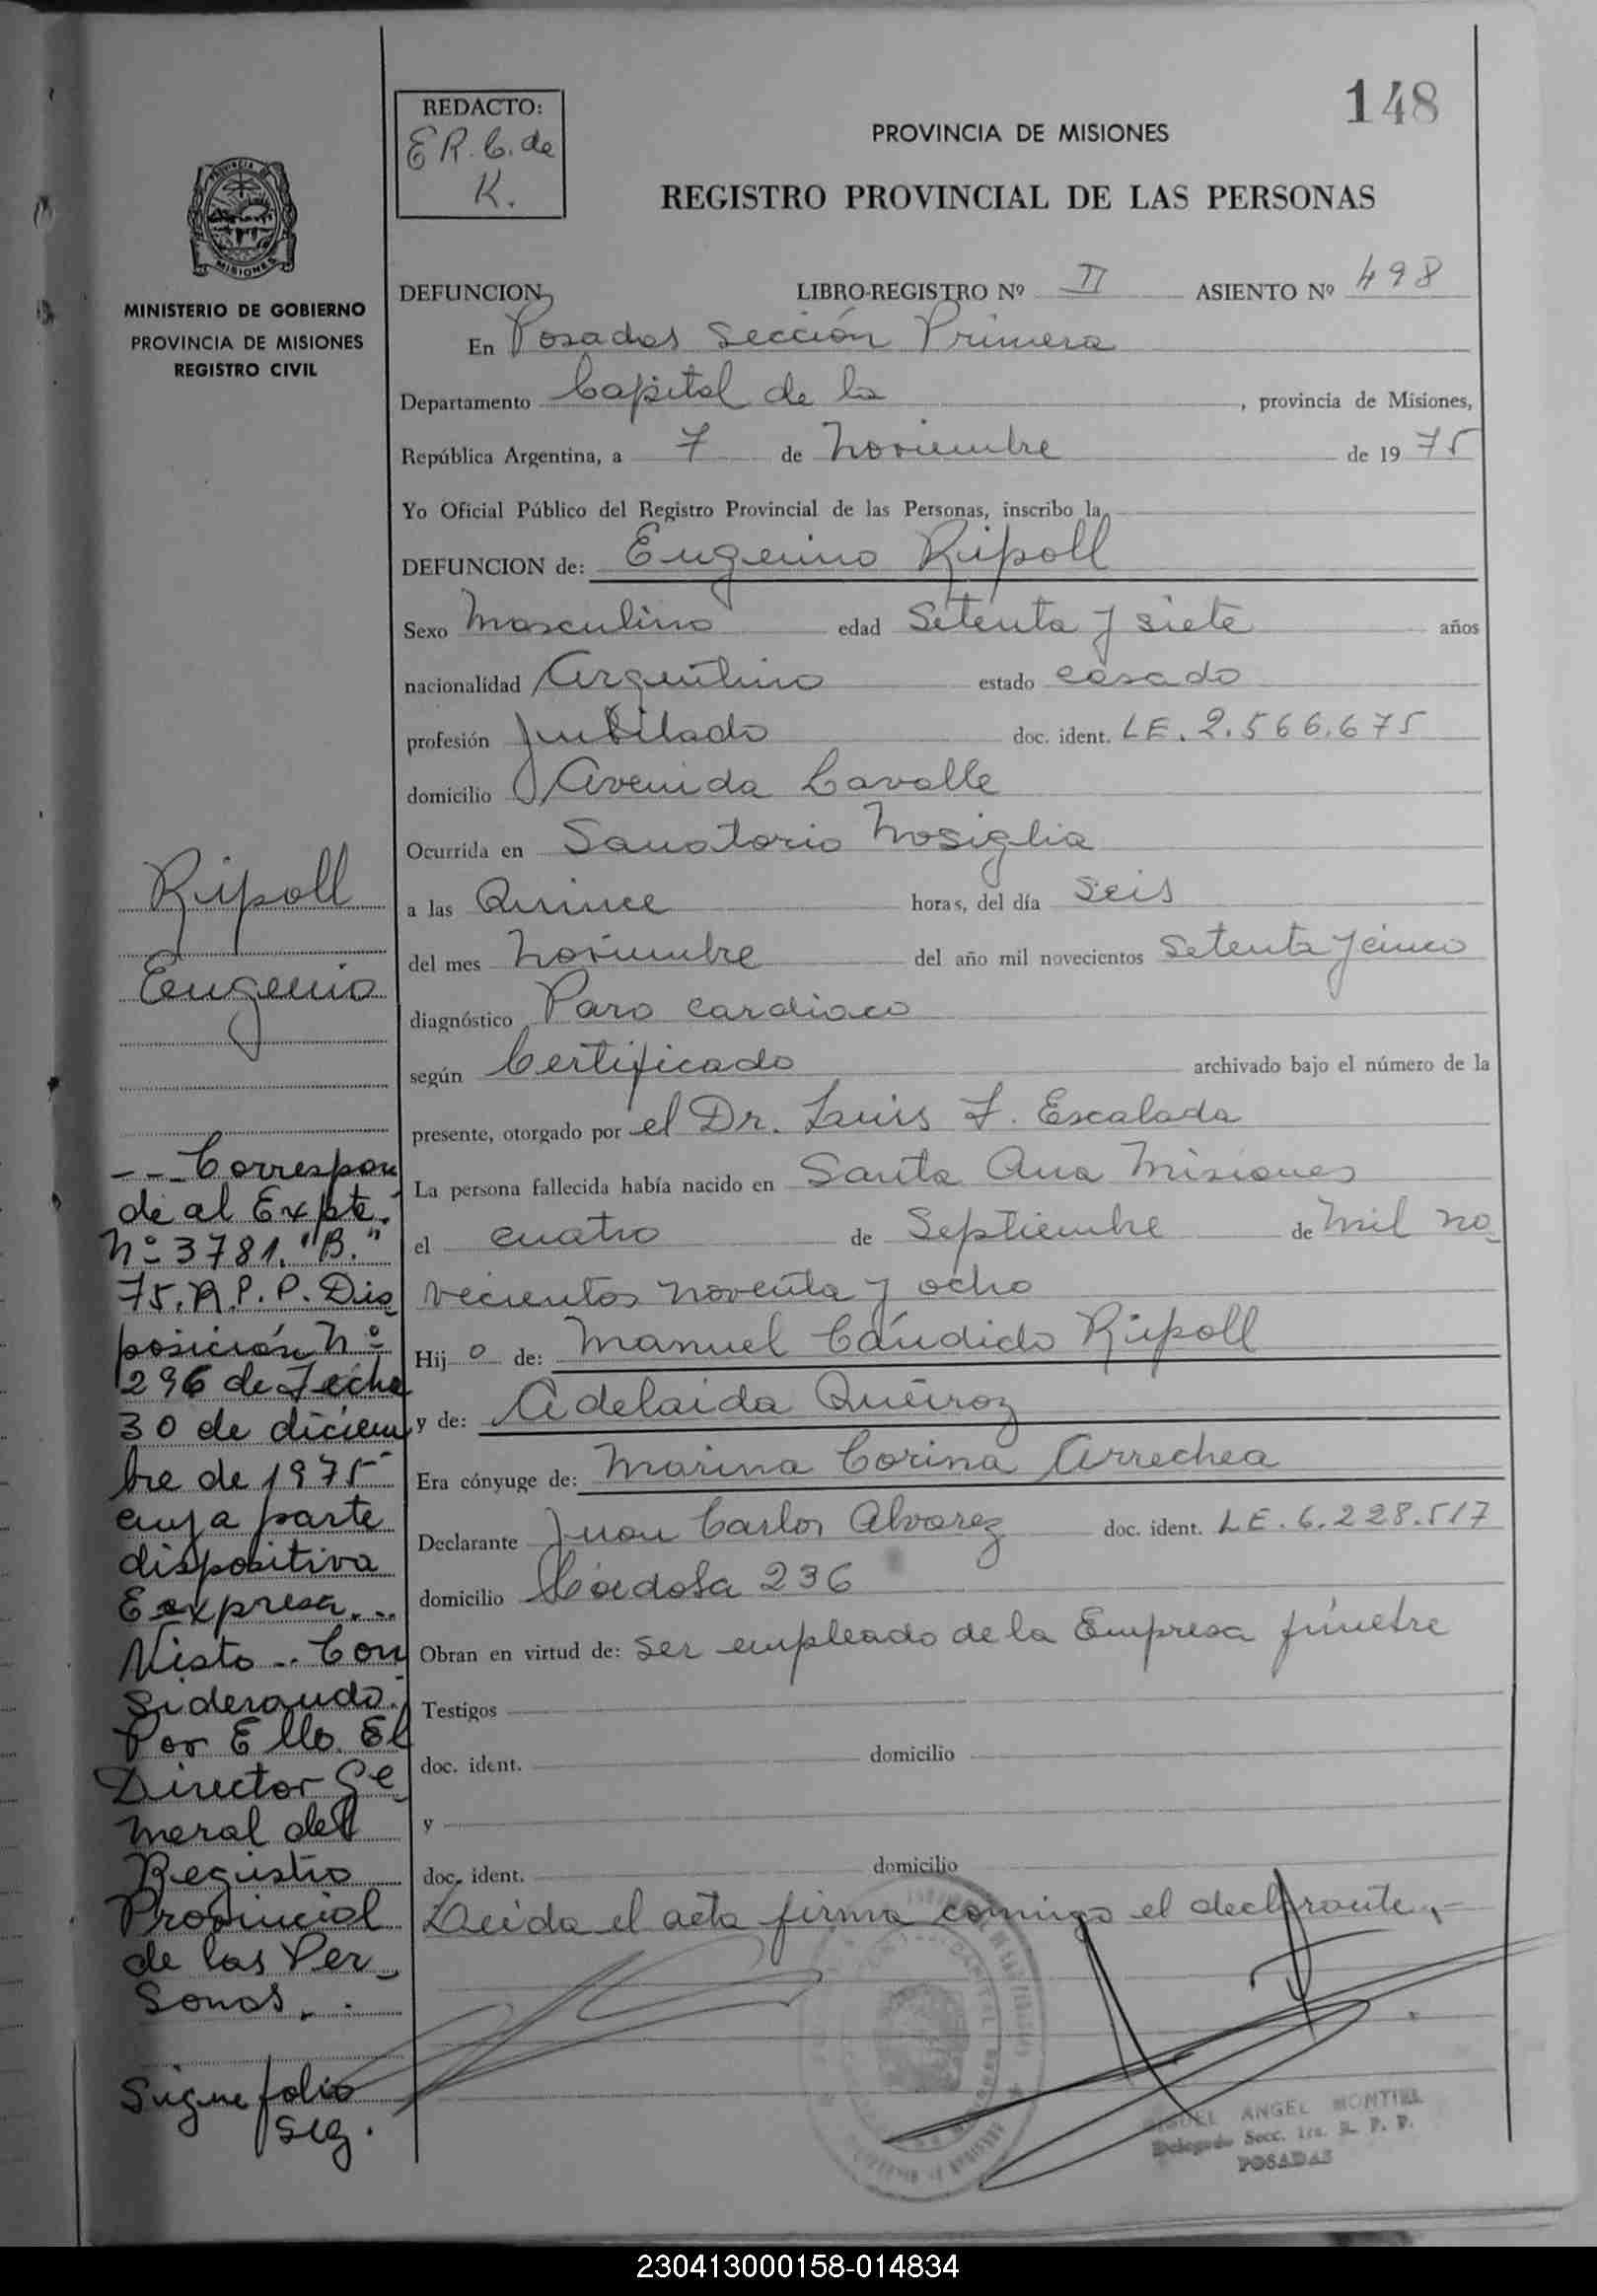 148
REDACTO:
E R. C. de
K.
PROVINCIA DE MISIONES
REGISTRO PROVINCIAL DE LAS PERSONAS
MISIONES
MINISTERIO DE GOBIERNO
PROVINCIA DE MISIONES
REGISTRO CIVIL
DEFUNCION LIBRO-REGISTRO Nº II ASIENTO Nº 498
En Posadas Sección Primera
Departamento Capital de la , provincia de Misiones,
República Argentina, a 7 de Noviembre de 1975
Yo Oficial Público del Registro Provincial de las Personas, inscribo la
DEFUNCION de: Eugenino Ripoll
Sexo Masculino edad Setenta y siete años
nacionalidad Argentino estado casado
profesión Jubilado doc. ident. LE. 2.566.675
domicilio Avenida Lavalle
Ocurrida en Sanatorio Nosiglia
a las Quince horas, del día Seis
del mes Noviembre del año mil novecientos Setenta y cinco
diagnóstico Paro cardiaco
según Certificado archivado bajo el número de la
presente, otorgado por el Dr. Luis F. Escalada
La persona fallecida había nacido en Santa Ana Misiones
el cuatro de Septiembre de Mil no-
vecientos noventa y ocho
Hij o de: Manuel Cándido Ripoll
y de: Adelaida Queiroz
Era cónyuge de: Marina Corina Arrechea
Declarante Juan Carlos Alvarez doc. ident. LE. 6.228.517
domicilio Córdoba 236
Obran en virtud de: ser empleado de la Empresa fúnebre
Testigos
doc. ident. domicilio
y
doc. ident. domicilio
Leída el acta firma conmigo el declarante.-
Ripoll
Eugenio
--- Correspon
de al Expte.
Nº 3781. "B."
75. R. P. P. Dis
posición Nº
296 de Fecha
30 de diciem
bre de 1975
cuya parte
dispositiva
Eexpresa...
Visto.. Con
siderando.
Por Ello. El
Director Ge
neral del
Registro
Provincial
de las Per-
sonas..
Sigue folio
sig.
MIGUEL ANGEL MONTIEL
Delegado Secc. 1ra. R. P. P.
POSADAS
230413000158-014834